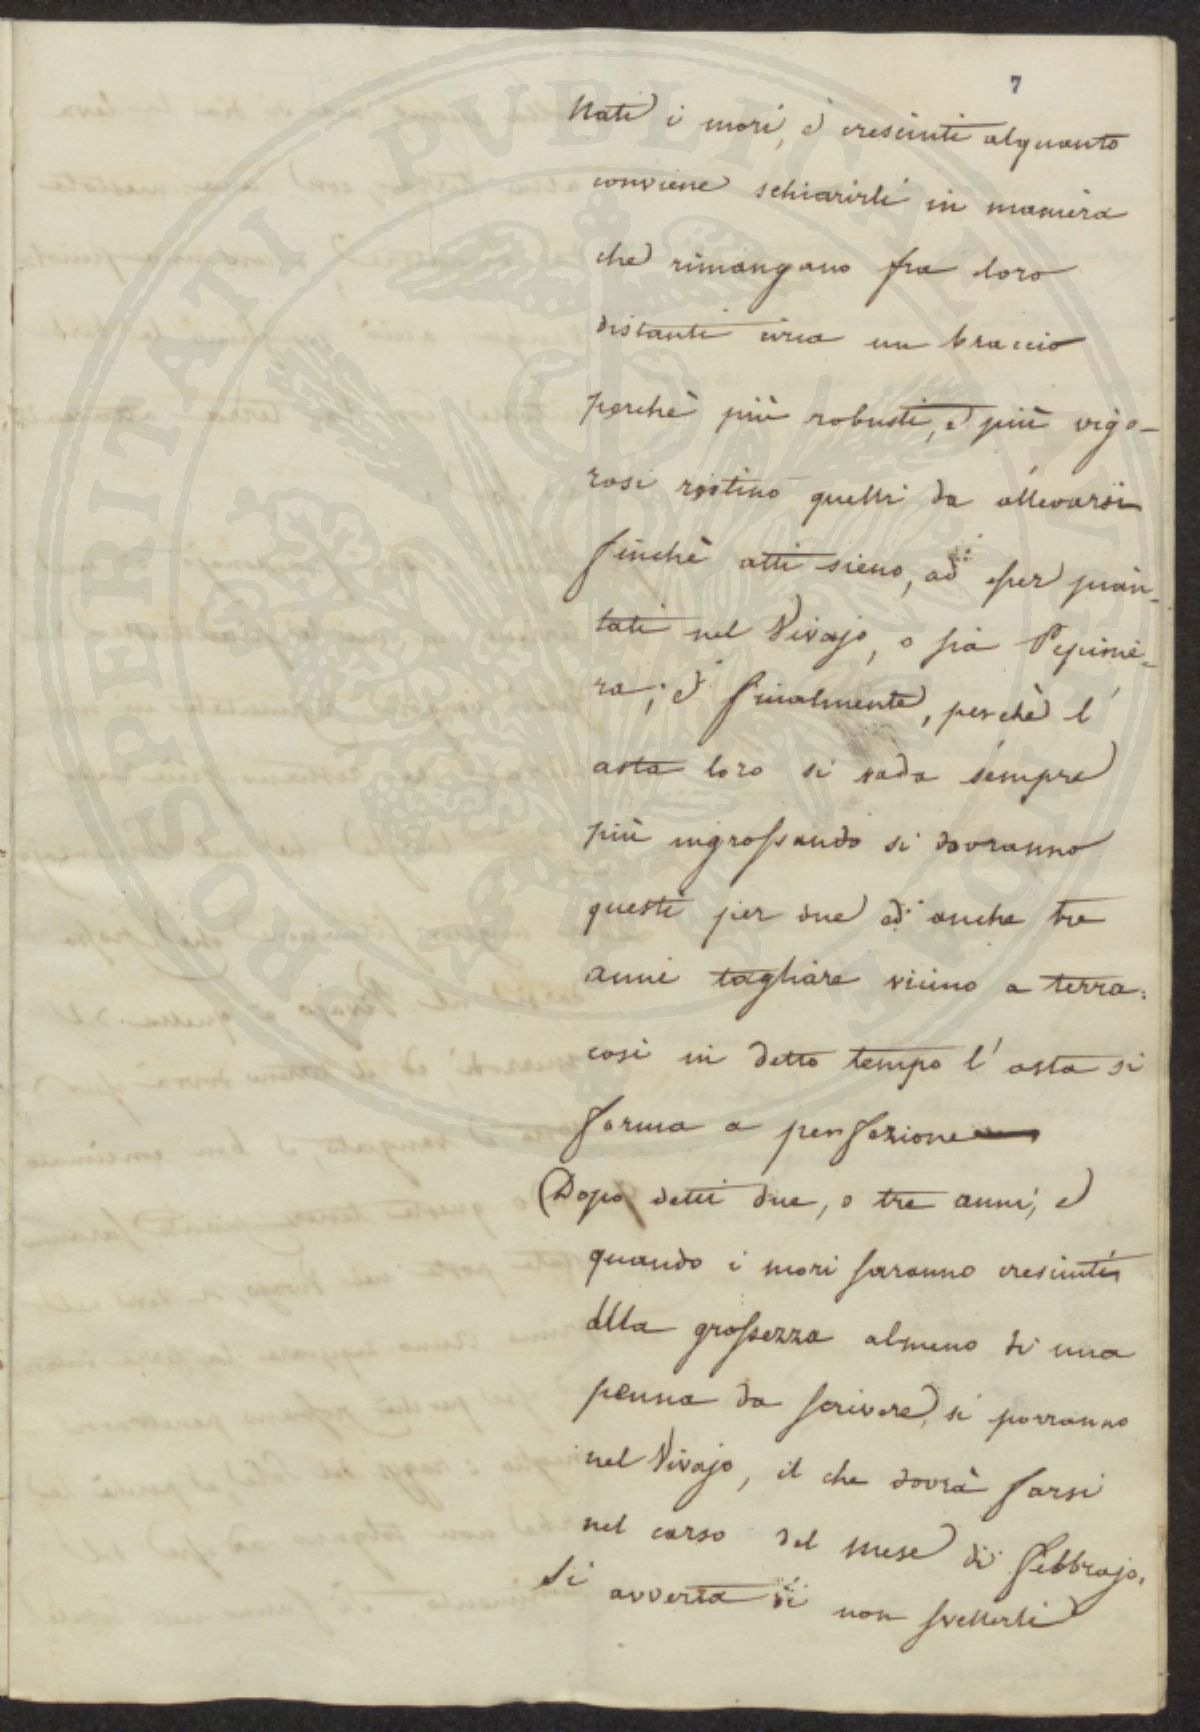 7
Nati i mori, e cresciuti alquanto
conviene schiarirli in maniera
che rimangano fra loro
distanti circa un braccio
perchè più robusti, e più vigo-
rosi restino quelli da allevarsi
finchè atti sieno, ad esser pian-
tati nel Vivajo, o sia Pepinie-
ra; e finalmente, perchè l'
asta loro si vada sempre
più ingrossando si dovranno
questi per due ed anche tre
anni tagliare vicino a terra:
così in detto tempo l'asta si
forma a perfezione
(Dopo detti due, o tre anni, e
quando i mori saranno cresciuti
alla grossezza almeno di una
penna da scrivere, si porranno
nel Vivajo, il che dovrà farsi
nel corso del mese di Febbrajo.
Si averta di non svellerli
PROSPERITATI PUBLICAE AUGENDAE